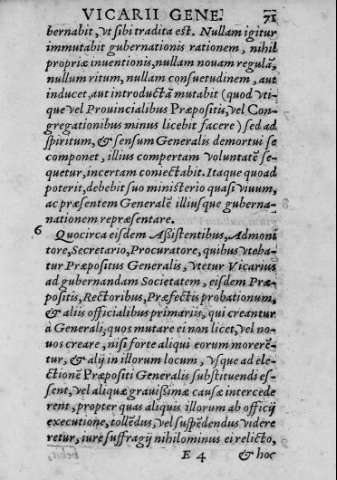 VICARII GENE. 71
bernabit, vt sibi tradita est. Nullam igitur
immutabit gubernationis rationem, nihil
propriæ inuentionis, nullam nouam regulã,
nullum ritum, nullam consuetudinem, aut
inducet, aut introductã mutabit (quod vti-
que vel Prouincialibus Præpositis, vel Con-
gregationibus minus licebit facere) sed ad
spiritum, & sensum Generalis demortui se
componet, illius compertam voluntatẽ se-
quetur, incertam coniectabit. Itaque quoad
poterit, debebit suo ministerio quasi viuum,
ac præsentem Generalẽ illiusque guberna-
nationem repræsentare.
6 Quocirca eisdem Aßistentibus, Admoni
tore, Secretario, Procuratore, quibus vteba-
tur Præpositus Generalis, vtetur Vicarius
ad gubernandam Societatem, eisdem Præ-
positis, Rectoribus, Præfectis probationum,
& aliis officialibus primariis, qui creantur
à Generali, quos mutare ei non licet, vel no-
uos creare, nisi forte aliqui eorum morerẽ-
tur, & alij in illorum locum, vsque ad ele-
ctionẽ Præpositi Generalis substituendi es-
sent, vel aliquæ grauißimæ causæ intercede
rent, propter quas aliquis illorum ab officij
executione, tollẽdus, vel suspẽdendus videre
retur, iure suffragij nihilominus ei relicto,
E 4 & hoc